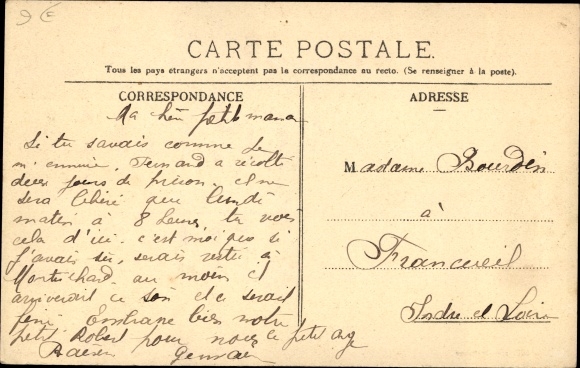 9 €
CARTE POSTALE.
Tous les pays étrangers n'acceptent pas la correspondance au recto. (Se renseigner à la poste).
CORRESPONDANCE
ADRESSE
Ma petite maman
Si tu savais comme je
m'ennuie, Fernand a récolté
deux jours de prison, il ne
sera libéré que lundi
matin à 8 heures, tu vois
cela d'ici. c'est moi que si
j'avais su, serais resté à
au moins il
arriverait ce soir et ce serait
fini. Embrasse bien notre
petit Robert pour nous le petit
Baisers Germaine
Madame Bourdin
à
Francueil
Indre et Loire